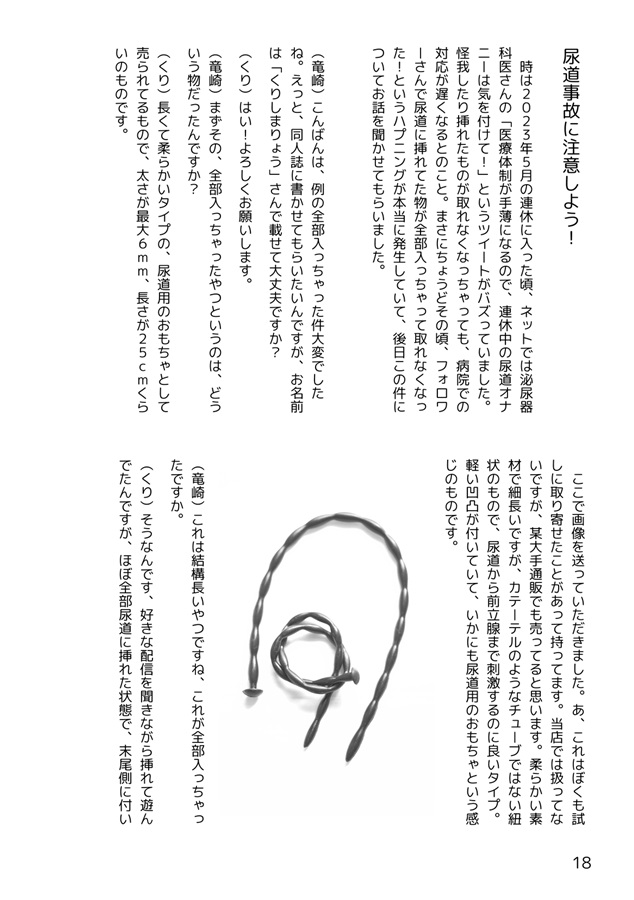 尿道事故に注意しよう！
　時は２０２３年５月の連休に入った頃、ネットでは泌尿器
科医さんの「医療体制が手薄になるので、連休中の尿道オナ
ニーは気を付けて！」というツイートがバズっていました。
怪我したり挿れたものが取れなくなっちゃっても、病院での
対応が遅くなるとのこと。まさにちょうどその頃、フォロワ
ーさんで尿道に挿れてた物が全部入っちゃって取れなくなっ
た！というハプニングが本当に発生していて、後日この件に
ついてお話を聞かせてもらいました。
（竜崎）こんばんは、例の全部入っちゃった件大変でした
ね。えっと、同人誌に書かせてもらいたいんですが、お名前
は「くりしまりょう」さんで載せて大丈夫ですか？
（くり）はい！よろしくお願いします。
（竜崎）まずその、全部入っちゃったやつというのは、どう
いう物だったんですか？
（くり）長くて柔らかいタイプの、尿道用のおもちゃとして
売られてるもので、太さが最大６ｍｍ、長さが２５ｃｍくら
いのものです。
　ここで画像を送っていただきました。あ、これはぼくも試
しに取り寄せたことがあって持ってます。当店では扱ってな
いですが、某大手通販でも売ってると思います。柔らかい素
材で細長いですが、カテーテルのようなチューブではない紐
状のもので、尿道から前立腺まで刺激するのに良いタイプ。
軽い凹凸が付いていて、いかにも尿道用のおもちゃという感
じのものです。
（竜崎）これは結構長いやつですね、これが全部入っちゃっ
たですか。
（くり）そうなんです、好きな配信を聞きながら挿れて遊ん
でたんですが、ほぼ全部尿道に挿れた状態で、末尾側に付い
18